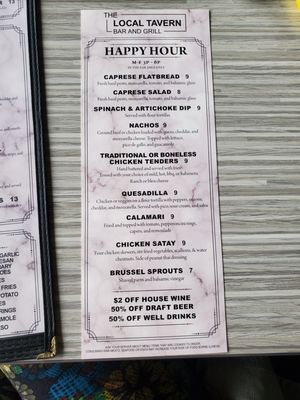 THE
LOCAL TAVERN
BAR AND GRILL
HAPPY HOUR
M-F 3P - 6P
IN THE BAR AREA ONLY
CAPRESE FLATBREAD 9
Fresh basil pesto, mozzarella, tomato, and balsamic glaze
CAPRESE SALAD 8
Fresh basil pesto, mozzarella, tomato, and balsamic glaze
SPINACH & ARTICHOKE DIP 9
Served with flour tortillas
NACHOS 9
Ground beef or chicken loaded with queso, cheddar, and
mozzarella cheese. Topped with lettuce,
pico de gallo, and guacamole
TRADITIONAL OR BONELESS
CHICKEN TENDERS 9
Hand battered and served with fries
Tossed with your choice of mild, hot, bbq, or habanero.
Ranch or bleu cheese
QUESADILLA 9
Chicken or veggies on a flour tortilla with peppers, onions,
cheddar, and mozzarella. Served with pico, sour cream, and salsa
CALAMARI 9
Fried and topped with tomato, pepperoncini rings,
capers, and remoulade
CHICKEN SATAY 9
Four chicken skewers, stir fried vegetables, scallions, & water
chestnuts. Side of peanut thai dressing
BRUSSEL SPROUTS 7
Shaved parm and balsamic vinegar
$2 OFF HOUSE WINE
50% OFF DRAFT BEER
50% OFF WELL DRINKS
ASK YOUR SERVER ABOUT MENU ITEMS THAT ARE COOKED TO ORDER.
13
S 13
GARLIC
FRIES
POTATO
RINGS